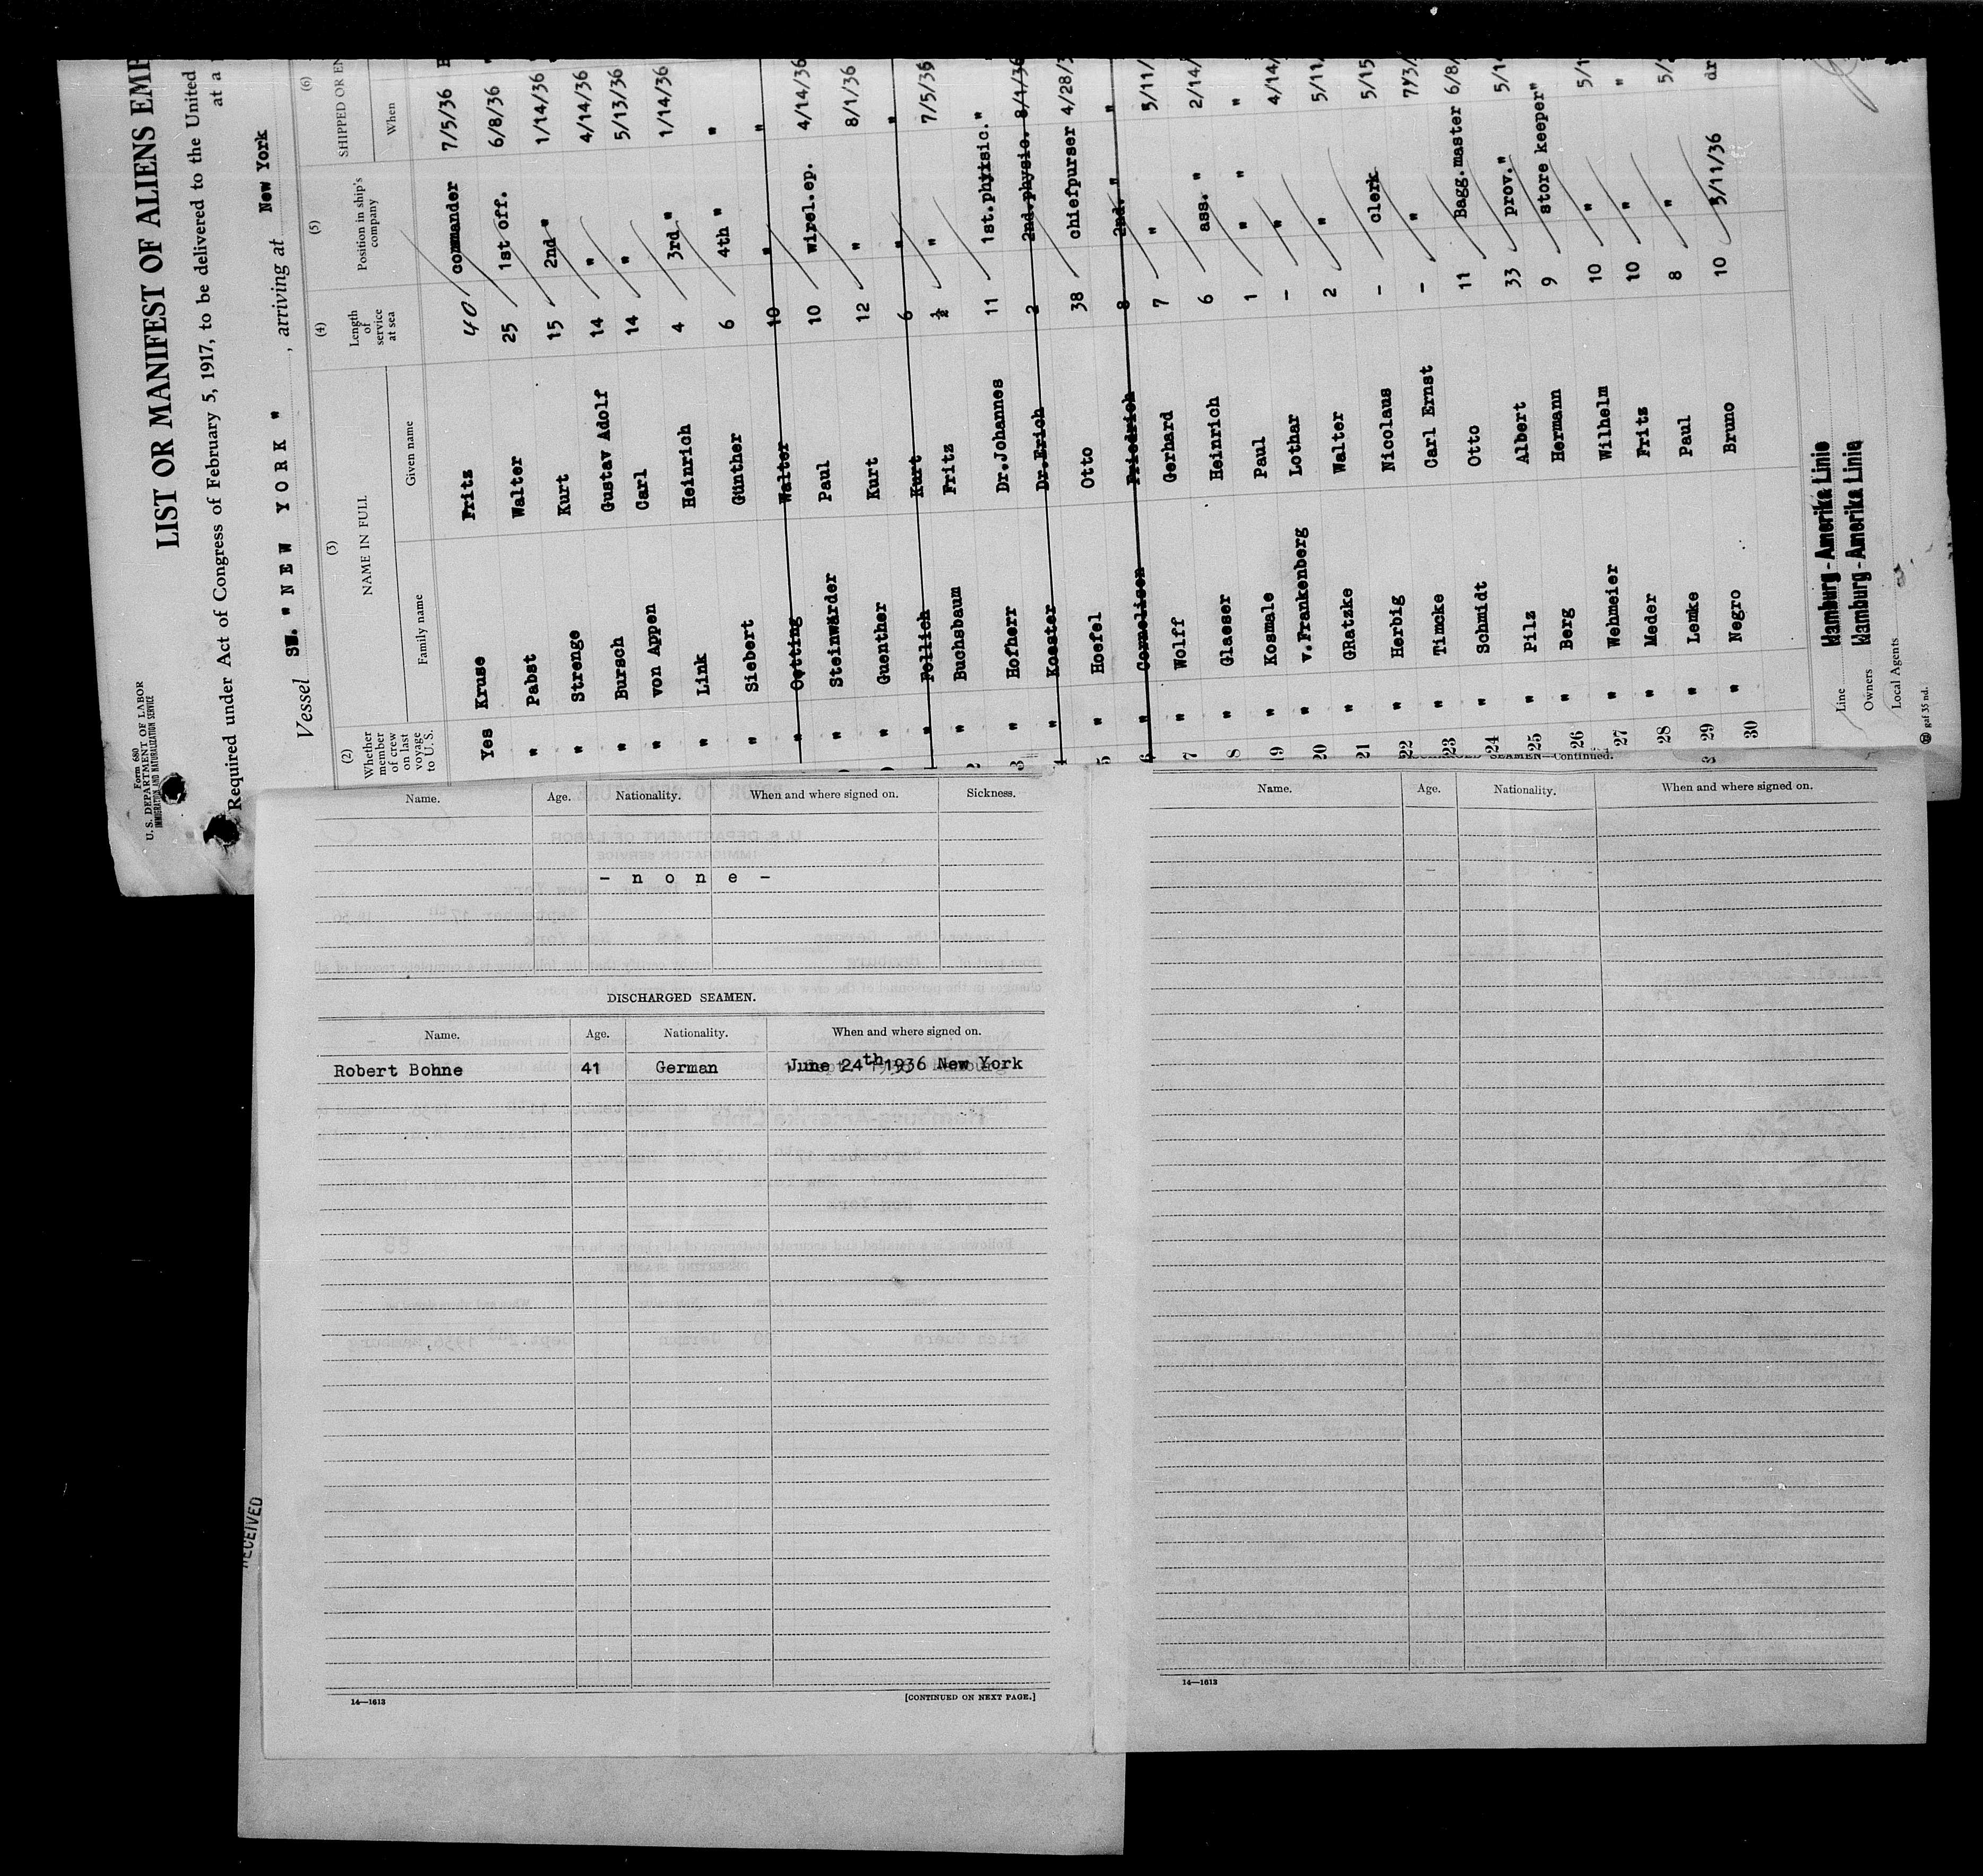 Form 680
U. S. DEPARTMENT OF LABOR
IMMIGRATION AND NATURALIZATION SERVICE
LIST OR MANIFEST OF ALIENS
Required under Act of Congress of February 5, 1917, to be delivered to the United
at a
Vessel SW. "NEW YORK", arriving at New York
(2) (3) (4) (5) (6)
Whether member of crew on last voyage to U. S. NAME IN FULL Length of service at sea Position in ship's company SHIPPED OR EN
Family name Given name When
Yes Kruse Fritz 40 commander 7/5/36
" Pabst Walter 25 1st off. 6/8/36 "
" Strenge Kurt 15 2nd " 1/14/36 "
" Bursch Gustav Adolf 14 " 4/14/36
" von Appen Carl 14 " 5/13/36
" Link Heinrich 4 3rd " 1/14/36
" Siebert Günther 6 4th " "
" Oetting Walter 10 " "
" Steinwärder Paul 10 wirel.ep. 4/14/36
" Guenther Kurt 12 " 8/1/36
" Pollich Kurt 6 " "
" Buchsbaum Fritz ½ " 7/5/36
" Hofherr Dr.Johannes 11 1st.physic. "
" Koester Dr.Erich 2 2nd.physic. 8/1/36
" Hoefel Otto 38 chiefpurser 4/28/3
" Cornelisen Friedrich 8 2nd. " "
7 " Wolff Gerhard 7 " 5/11/
8 " Glaeser Heinrich 6 ass. " 2/14/
19 " Kosmale Paul 1 " " "
20 " v.Frankenberg Lothar - " 4/14/
21 " GRatzke Walter 2 " 5/11/
22 " Herbig Nicolaus - clerk 5/15
23 " Timcke Carl Ernst - " 7/3/
24 " Schmidt Otto 11 Bagg.master 6/8/
25 " Pilz Albert 33 prov." 5/14
26 " Berg Hermann 9 store keeper"
27 " Wehmeier Wilhelm 10 " 5/1
28 " Meder Fritz 10 " "
29 " Lemke Paul 8 "
30 " Negro Bruno 10 3/11/36 dr
Line Hamburg-Amerika Linie
Owners Hamburg-Amerika Linie
Local Agents
gaf 35 nd.
Name. Age. Nationality. When and where signed on. Sickness.
- n o n e -
DISCHARGED SEAMEN.
Name. Age. Nationality. When and where signed on.
Robert Bohne 41 German June 24th 1936 New York
14—1613 [CONTINUED ON NEXT PAGE.]
RECEIVED
DISCHARGED SEAMEN—Continued.
Name. Age. Nationality. When and where signed on.
14—1613